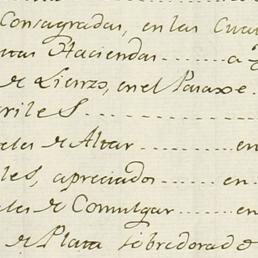 Consagradas, en las Cua
tas Haciendas ........ a
de Lienzo, en el Paraxe.
riles ............
les de Altar ......... en
les, apreciados ..... en
les de Comulgar ..... en
de Plata sobredorad